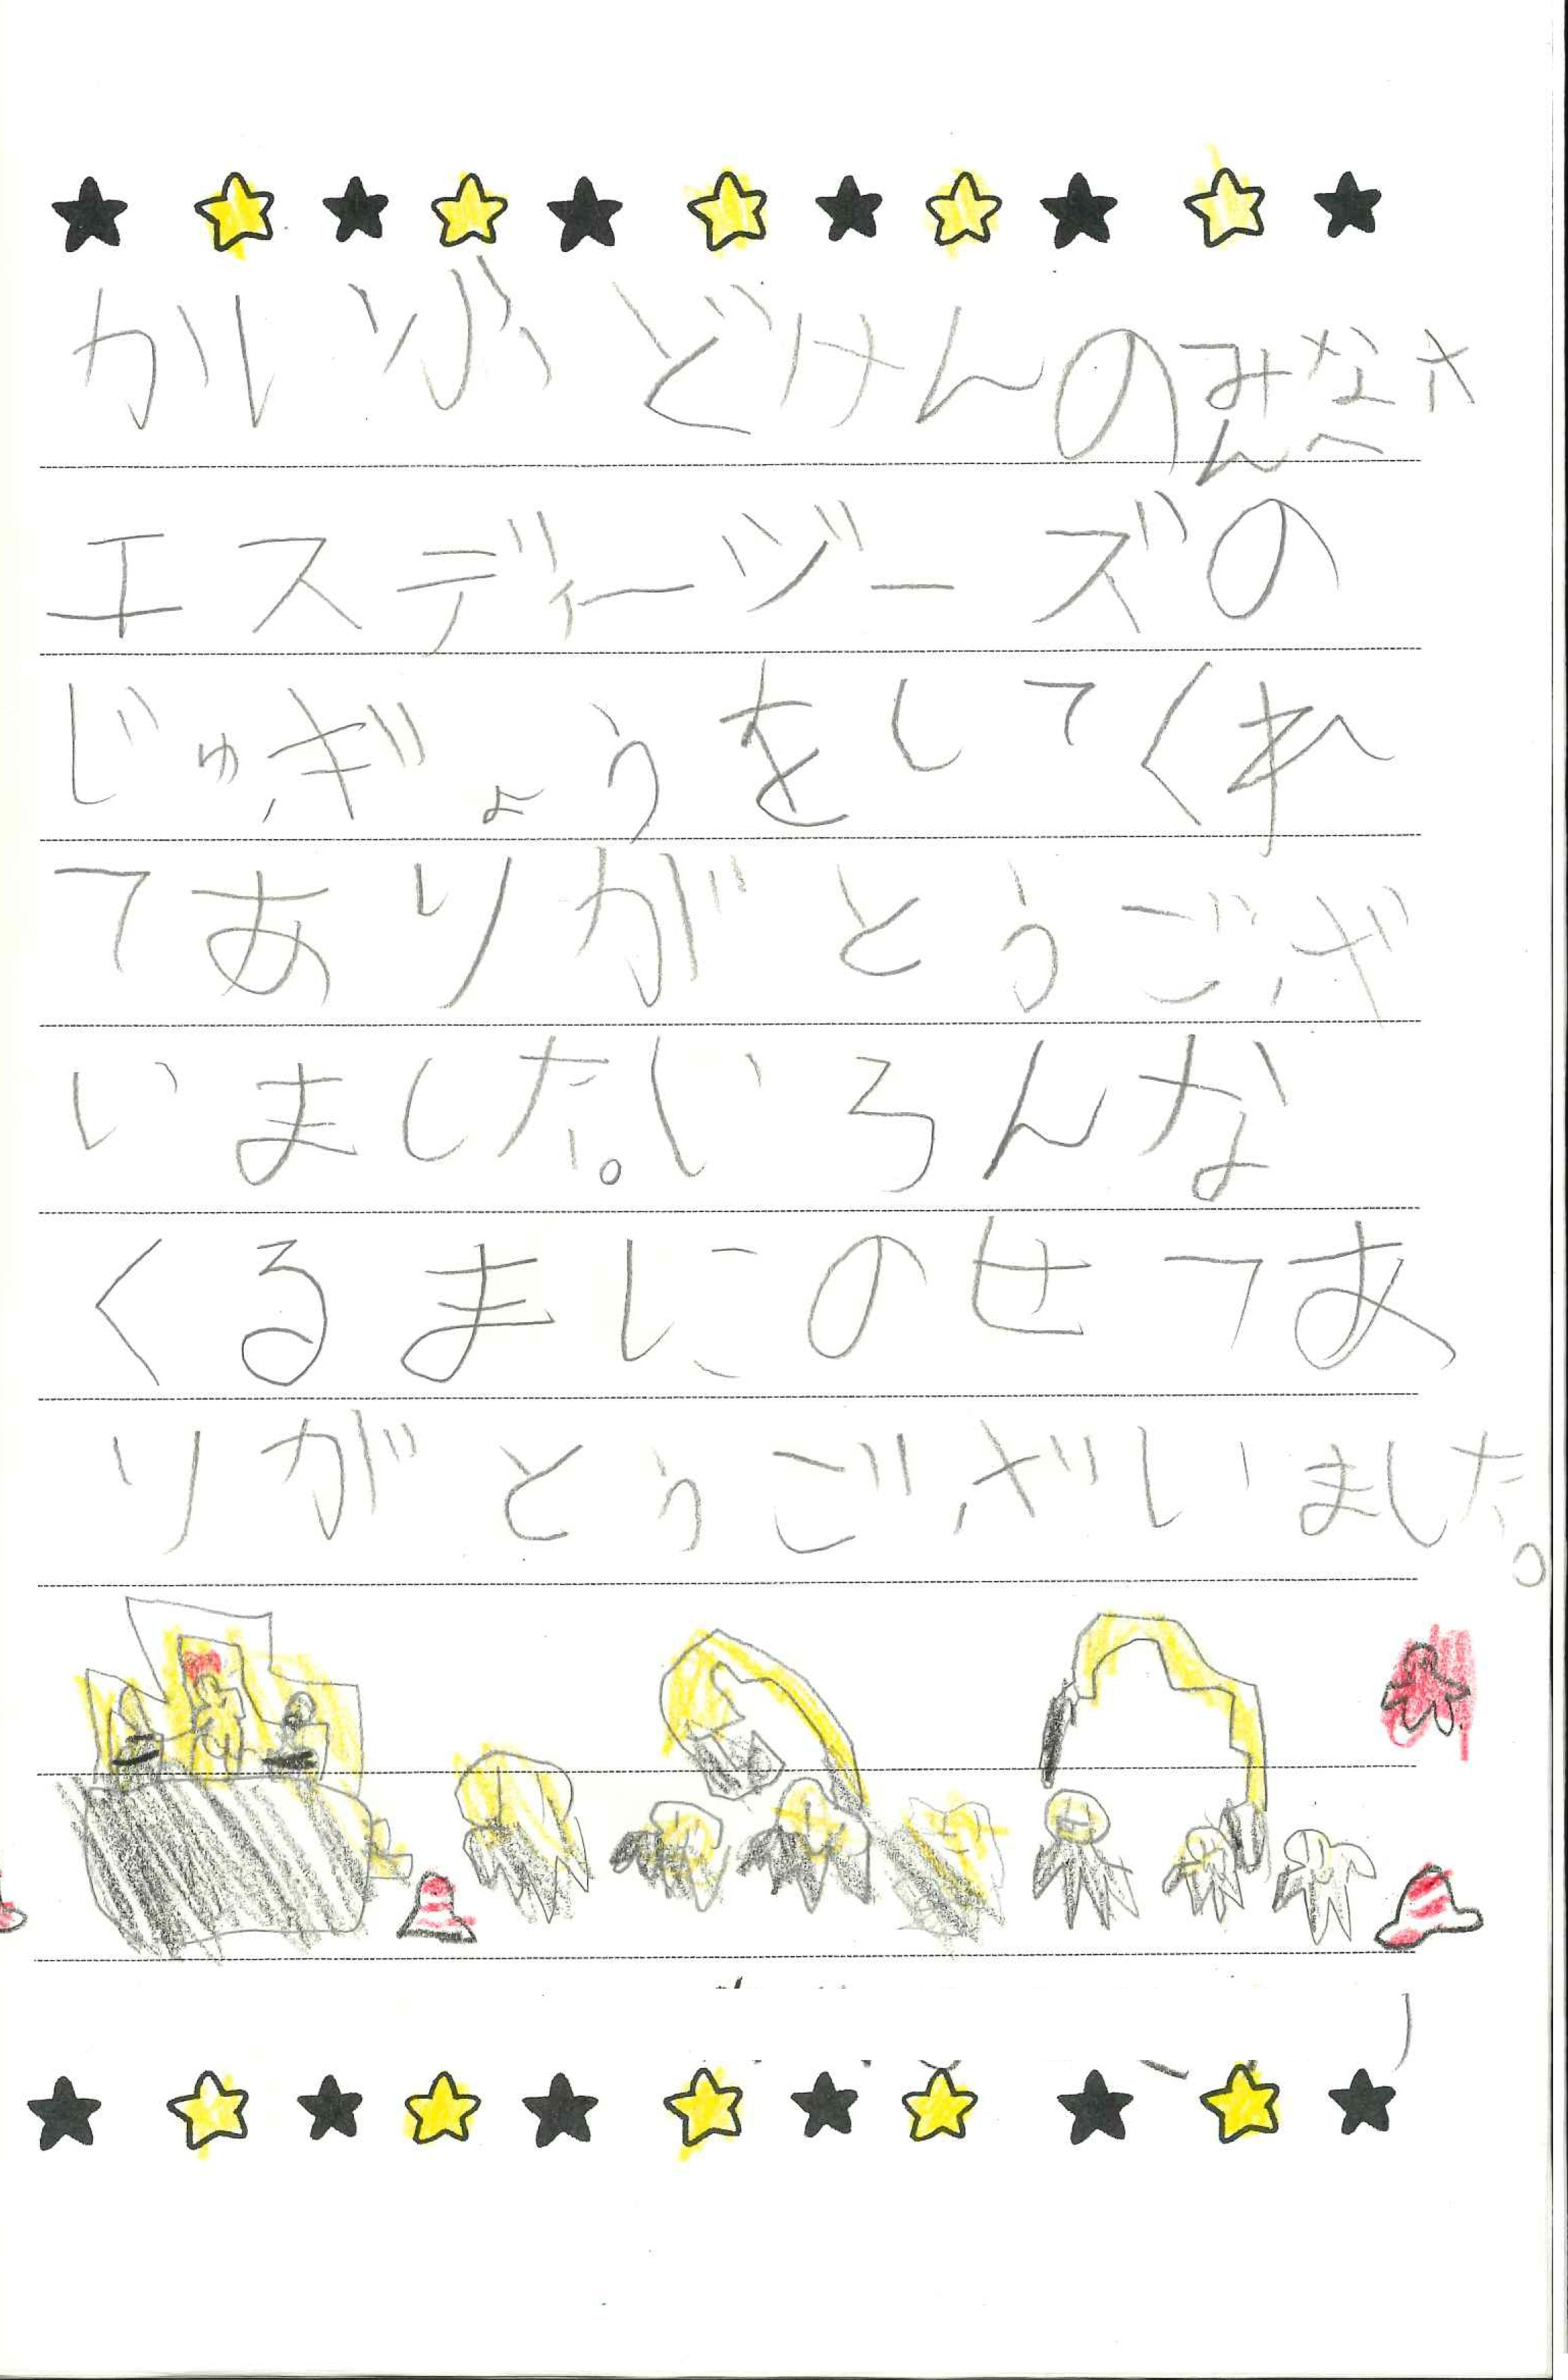 かいぶどけんのみなさ
んへ
エスディージーズの
じゅぎょうをしてくれ
てありがとうござ
いました。いろんな
くるまにのせてあ
りがとうございました。